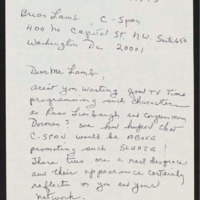 Brian Lamb, C-Span
400 No Capitol St N.W. Suite 650
Washington Dc 20001
Dear Mr Lamb,
Arent you wasting good TV time
programming such characters
as Rush Limbaugh and Congressman
Dornan? We had hoped that
C-SPAN would be ABOVE
promoting such SLEAZE!
These two are a real disgrace
and their appearance certainly
reflects on you and your
network.